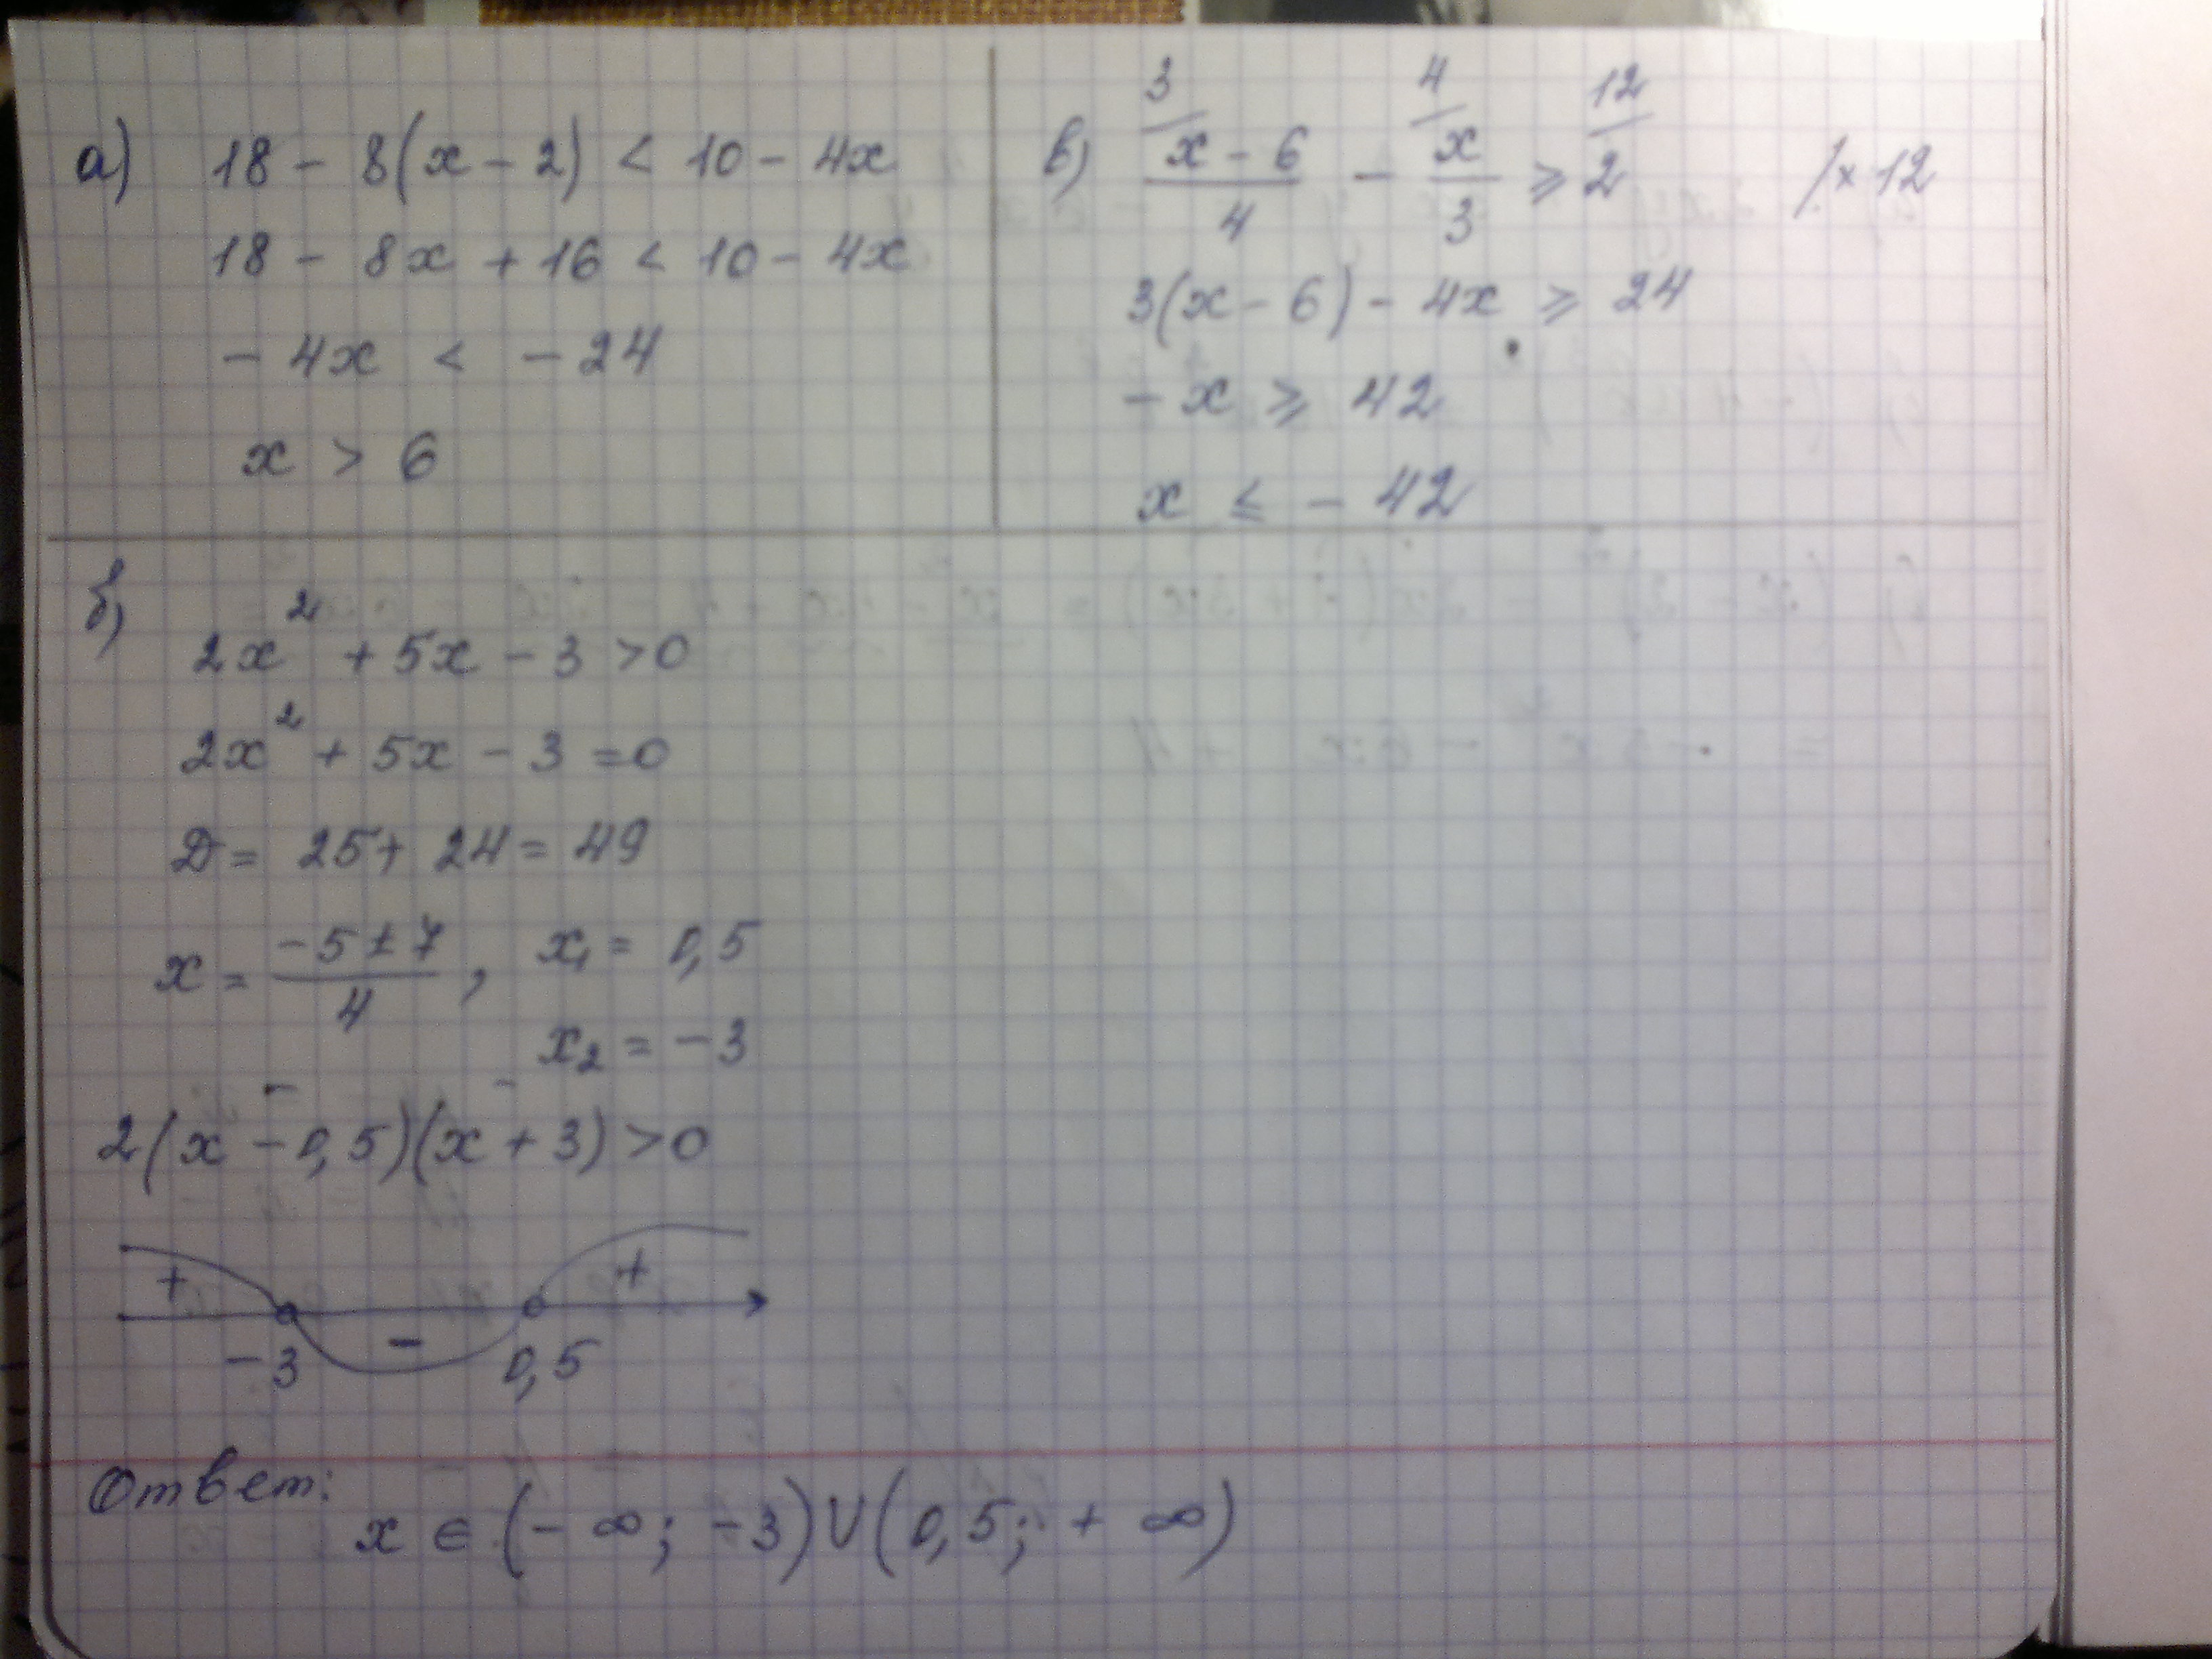 а) 18 - 8(x - 2) < 10 - 4x
18 - 8x + 16 < 10 - 4x
- 4x < - 24
x > 6
в) 3/ (x - 6)/4 - 4/ x/3 ≥ 12/ 2 /×12
3(x - 6) - 4x ≥ 24
- x ≥ 42
x ≤ - 42
б) 2x² + 5x - 3 > 0
2x² + 5x - 3 = 0
D = 25 + 24 = 49
x = (-5 ± 7)/4 , x₁ = 0,5
x₂ = -3
2(x - 0,5)(x + 3) > 0
+ - +
-3 0,5
Ответ:
x ∈ (- ∞; -3) ∪ (0,5; + ∞)